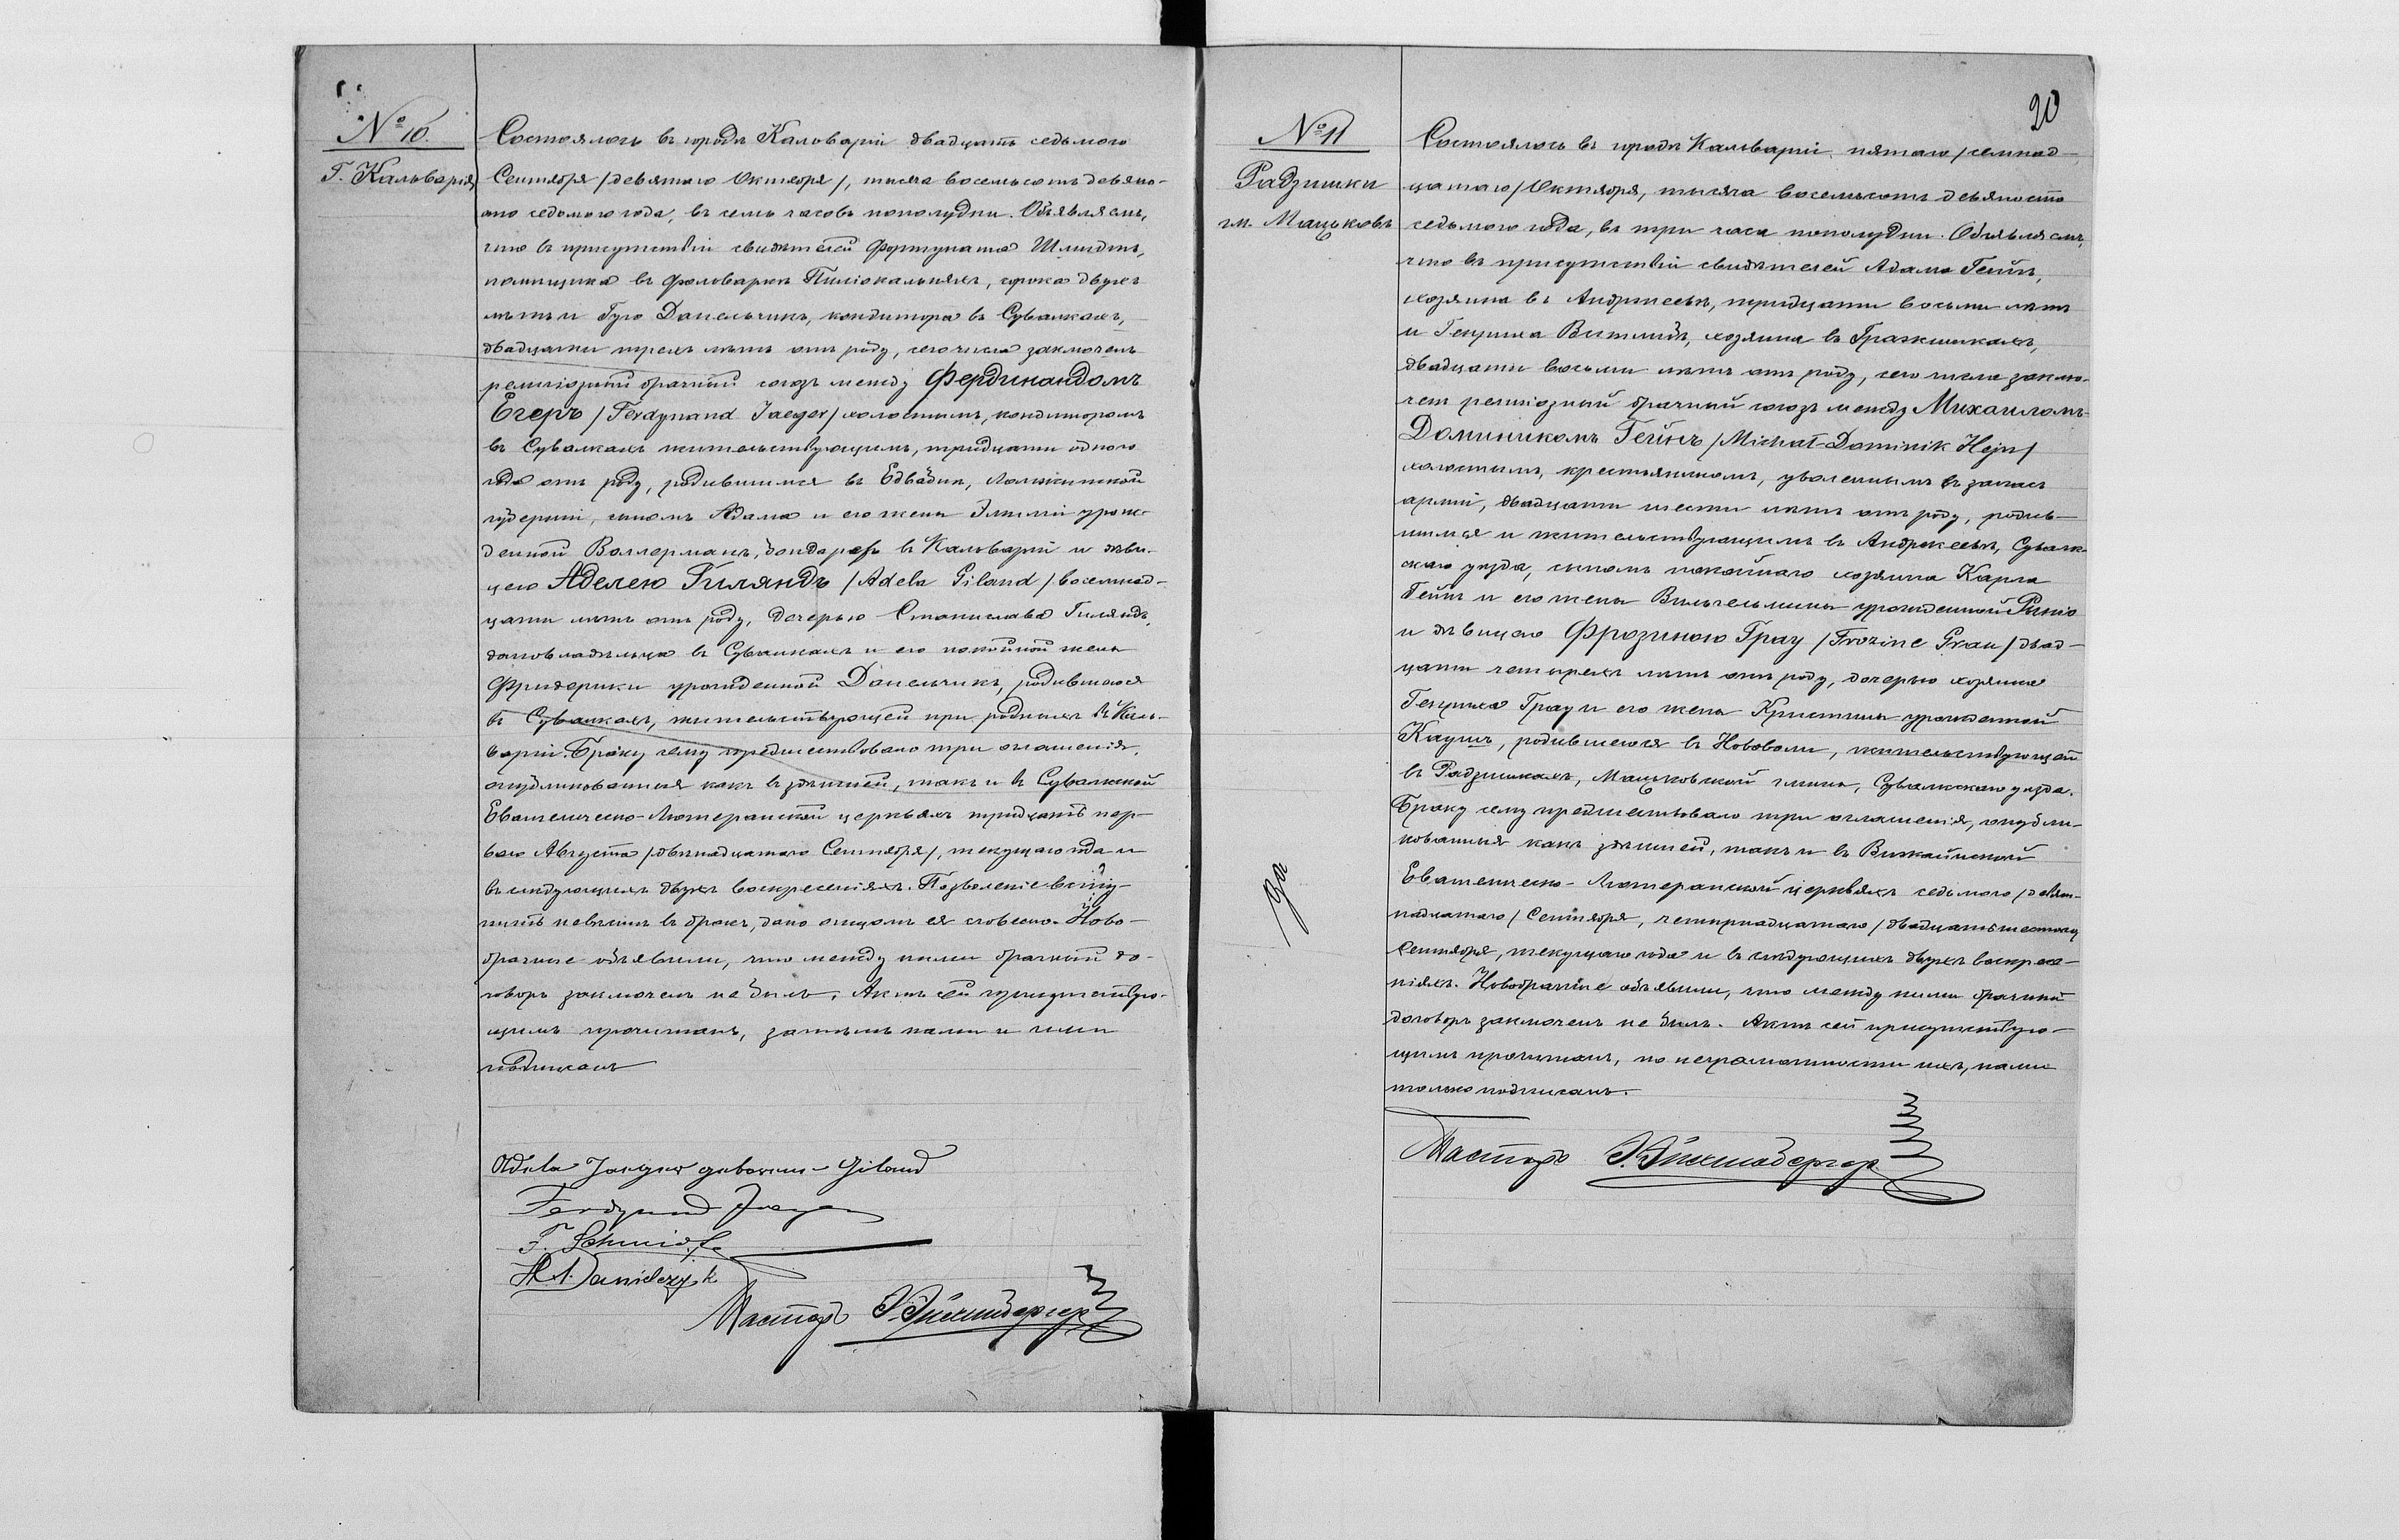 № 10.
Г. Кальварія
Состоялось въ городѣ Кальваріи двадцать седьмого
Сентября /девятаго Октября/, тысяча восемьсотъ девяно-
сто седьмого года, въ семь часовъ пополудни. Объявляемъ,
что въ присутствіи свидѣтелей Фортуната Шмидтъ,
помѣщика въ фольваркѣ Пиліокальняхъ, сорока двухъ
лѣтъ и Гуго Даниельчикъ, кондитора въ Сувалкахъ,
двадцати трехъ лѣтъ отъ роду, сего числа заключенъ
религіозный брачный союзъ между Фердинандомъ
Егеръ /Ferdynand Jaeger/ холостымъ, кондиторомъ
въ Сувалкахъ жительствующимъ, тридцати одного
года отъ роду, родившимся въ Едвабнѣ, Ломжинской
губерніи, сыномъ Адама и его жены Эмиліи урож-
денной Воллерманъ, въ Кальваріи и дѣви-
цею Аделею Гиляндъ /Adela Giland/ восемнад-
цати лѣтъ отъ роду, дочерью Станислава Гиляндъ,
домовладѣльца въ Сувалкахъ и его покойной жены
Фридерики урожденной Даниельчикъ, родившеюся
въ Сувалкахъ, жительствующей при родныхъ въ Каль-
варіи. Браку сему предшествовало три оглашенія,
опубликованныя какъ въ здѣшней, такъ и въ Сувалкской
Евангелическо-Лютеранской церквахъ тридцать пер-
ваго Августа /двѣнадцатаго Сентября/, текущаго года и
въ слѣдующихъ двухъ воскресеніяхъ. Позволеніе всту-
пить невѣстѣ въ бракъ, дано отцомъ ея словесно. Ново-
брачные объявили, что между ними брачный до-
говоръ заключенъ не былъ. Актъ сей присутствую-
щимъ прочитанъ, затѣмъ нами и ими
подписанъ
Adela Jaeger geborene Giland
Ferdynand Jaeger
F. Schmidt
H. Danielczyk
Пасторъ
20
№ 11
Радзишки
гм. Мацьковъ
за
Состоялось въ городѣ Кальваріи, пятаго /семнад-
цатаго/ Октября, тысяча восемьсотъ девяносто
седьмого года, въ три часа пополудни. Объявляемъ,
что въ присутствіи свидѣтелей Адама Гейнъ,
хозяина въ Андржеевѣ, тридцати восьми лѣтъ
и Генриха Витмидъ, хозяина въ Гражишкахъ,
двадцати восьми лѣтъ отъ роду, сего числа заклю-
ченъ религіозный брачный союзъ между Михаиломъ-
Доминикомъ Гейнъ /Michał-Dominik Hejn/
холостымъ, крестьяниномъ, уволеннымъ въ запасъ
арміи, двадцати шести лѣтъ отъ роду, родив-
шимся и жительствующимъ въ Андржеевѣ, Сувалк-
скаго уѣзда, сыномъ покойнаго хозяина Карла
Гейнъ и его жены Вильгельмины урожденной
и дѣвицею Фрозиною Грау /Frozine Grau/ двад-
цати четырехъ лѣтъ отъ роду, дочерью хозяина
Генриха Грау и его жены Кристины урожденной
Каушъ, родившеюся въ Нововоли, жительствующей
въ Радзишкахъ, Мацьковской гмины, Сувалкскаго уѣзда.
Браку сему предшествовало три оглашенія, опубли-
кованныя какъ здѣшней, такъ и въ Вижайнской
Евангелическо-Лютеранской церквахъ седьмого /девят-
надцатаго/ Сентября, четырнадцатаго /двадцать шестого/
Сентября, текущаго года и въ слѣдующихъ двухъ воскресе-
ніяхъ. Новобрачные объявили, что между ними брачный
договоръ заключенъ не былъ. Актъ сей присутствую-
щимъ прочитанъ, по неграмотности ихъ, нами
только подписанъ.
Пасторъ